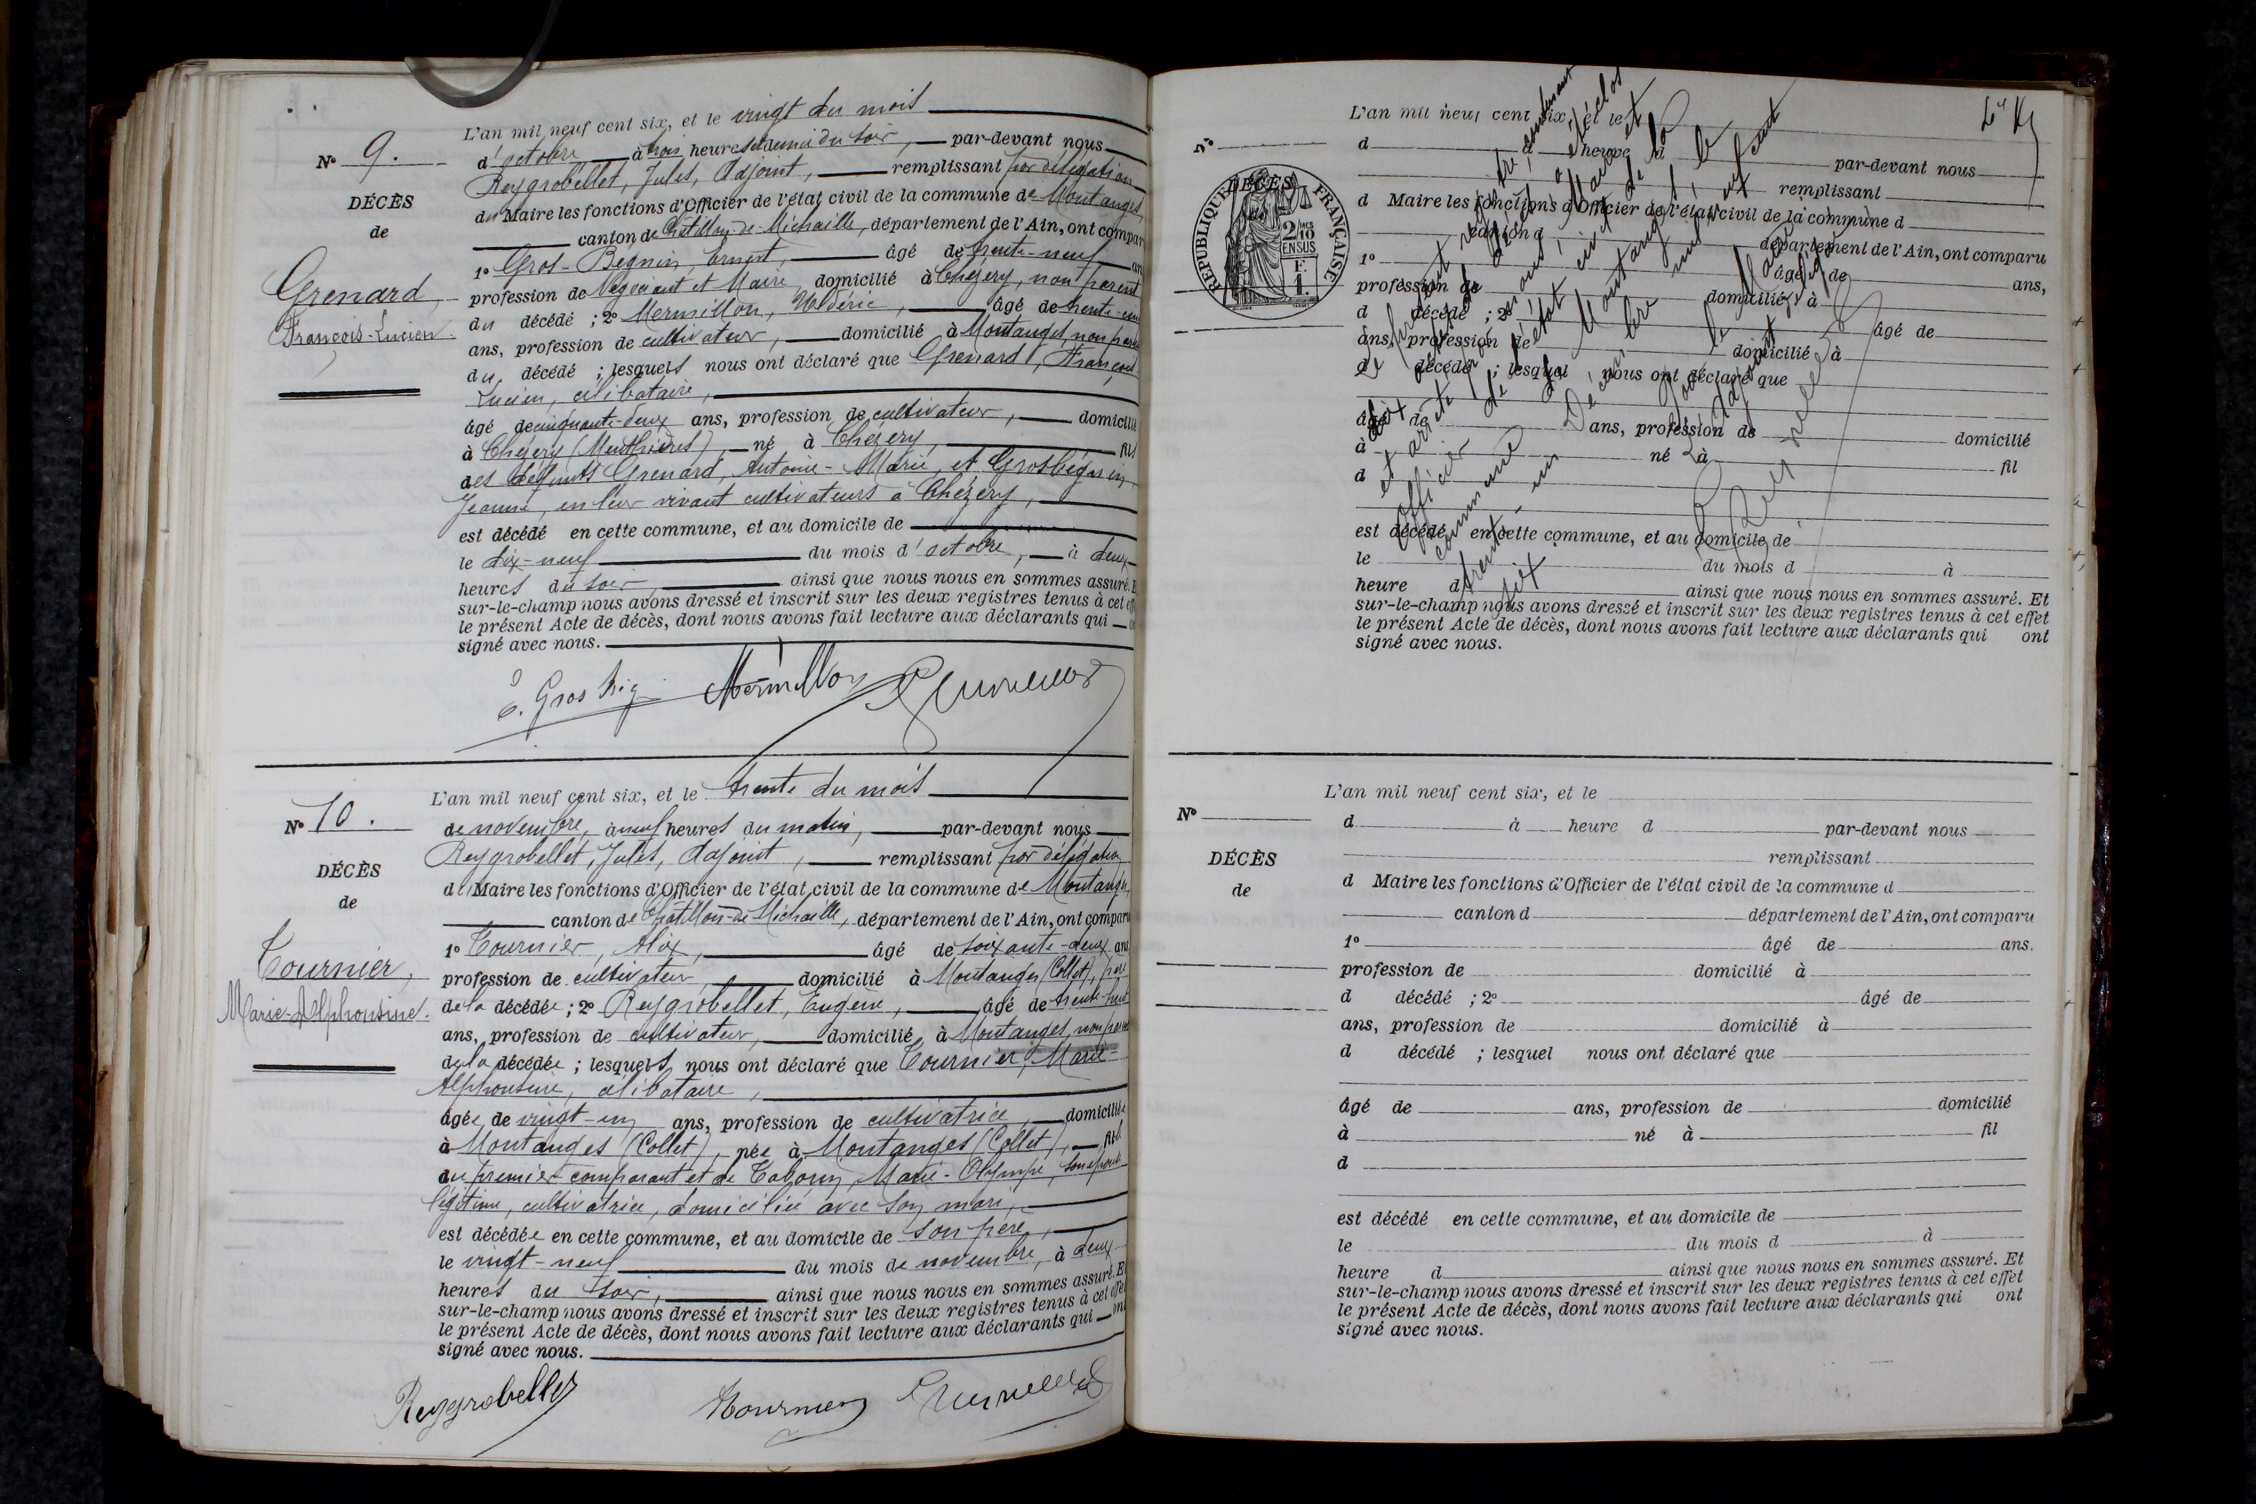 N° 9.
DÉCÈS
de
Grenard,
François-Lucien.
L'an mil neuf cent six, et le vingt du mois
d'octobre à trois heures et demie du soir, par-devant nous
Reygrobellet, Jules, Adjoint, remplissant par délégation
du Maire les fonctions d'Officier de l'état civil de la commune de Montanges,
canton de Châtillon-de-Michaille, département de l'Ain, ont compar
1° Gros-Begnin, Ernest, âgé de trente-neuf an
profession de Négociant et Maire, domicilié à Chézery, non parent
du décédé ; 2° Mermillon, âgé de trente-un
ans, profession de cultivateur, domicilié à Montanges, non paren
du décédé ; lesquels nous ont déclaré que Grenard, François
Lucien, célibataire,
âgé de cinquante-deux ans, profession de cultivateur, domicilié
à Chézery (Menthières), né à Chézery, fils
des défunts Grenard, Antoine-Marie, et Grosbégnin,
Jeanne, en leur vivant cultivateurs à Chézery,
est décédé en cette commune, et au domicile de
le dix-neuf du mois d'octobre, à deux
heures du soir ainsi que nous nous en sommes assuré. E
sur-le-champ nous avons dressé et inscrit sur les deux registres tenus à cet eff
le présent Acte de décès, dont nous avons fait lecture aux déclarants qui
signé avec nous.
E. Gros Big Mermillon
N° 10.
DÉCÈS
de
Tournier,
Marie-Alphonsine.
L'an mil neuf cent six, et le trente du mois
de novembre, à neuf heures du matin, par-devant nous
Reygrobellet, Jules, Adjoint, remplissant par délégation
du Maire les fonctions d'Officier de l'état civil de la commune de Montanges,
canton de Châtillon-de-Michaille, département de l'Ain, ont comparu
1° Tournier, Alix, âgé de soixante-deux ans
profession de cultivateur domicilié à Montanges (Collet), père
de la décédée ; 2° Reygrobellet, Eugène, âgé de trente-huit
ans, profession de cultivateur, domicilié à Montanges, non parent
de la décédée ; lesquels nous ont déclaré que Tournier, Marie-
Alphonsine, célibataire,
âgée de vingt-un ans, profession de cultivatrice, domiciliée
à Montanges (Collet), née à Montanges (Collet), fille
du premier comparant et de Marie-Olympe, son épouse
légitime, cultivatrice, domiciliée avec son mari,
est décédée en cette commune, et au domicile de son père,
le vingt-neuf du mois de novembre, à deux
heures du soir, ainsi que nous nous en sommes assuré. E
sur-le-champ nous avons dressé et inscrit sur les deux registres tenus à cet effet
le présent Acte de décès, dont nous avons fait lecture aux déclarants qui ont
signé avec nous.
Reygrobellet Tournier
N°
DÉCÈS
RÉPUBLIQUE FRANÇAISE
2/10 EN SUS
F. 1.
L'an mil neuf cent six, et le
d à heure d par-devant nous
remplissant
d Maire les fonctions d'Officier de l'état civil de la commune d
canton d département de l'Ain, ont comparu
1° âgé de ans,
profession de domicilié à
d décédé ; 2° âgé de
ans, profession de domicilié à
d décédé ; lesquel nous ont déclaré que
âgé de ans, profession de domicilié
à né à fil
d
est décédé en cette commune, et au domicile de
le du mois d à
heure d ainsi que nous nous en sommes assuré. Et
sur-le-champ nous avons dressé et inscrit sur les deux registres tenus à cet effet
le présent Acte de décès, dont nous avons fait lecture aux déclarants qui ont
signé avec nous.
Le présent registre, contenant
dix actes de décès a été clos
et arrêté par nous, Maire et
Officier de l'état civil de la
commune de Montanges, le
trente-un Décembre mil neuf cent
six
Pour le Maire
L'Adjoint délégué
N°
DÉCÈS
de
L'an mil neuf cent six, et le
d à heure d par-devant nous
remplissant
d Maire les fonctions d'Officier de l'état civil de la commune d
canton d département de l'Ain, ont comparu
1° âgé de ans.
profession de domicilié à
d décédé ; 2° âgé de
ans, profession de domicilié à
d décédé ; lesquel nous ont déclaré que
âgé de ans, profession de domicilié
à né à fil
d
est décédé en cette commune, et au domicile de
le du mois d à
heure d ainsi que nous nous en sommes assuré. Et
sur-le-champ nous avons dressé et inscrit sur les deux registres tenus à cet effet
le présent Acte de décès, dont nous avons fait lecture aux déclarants qui ont
signé avec nous.